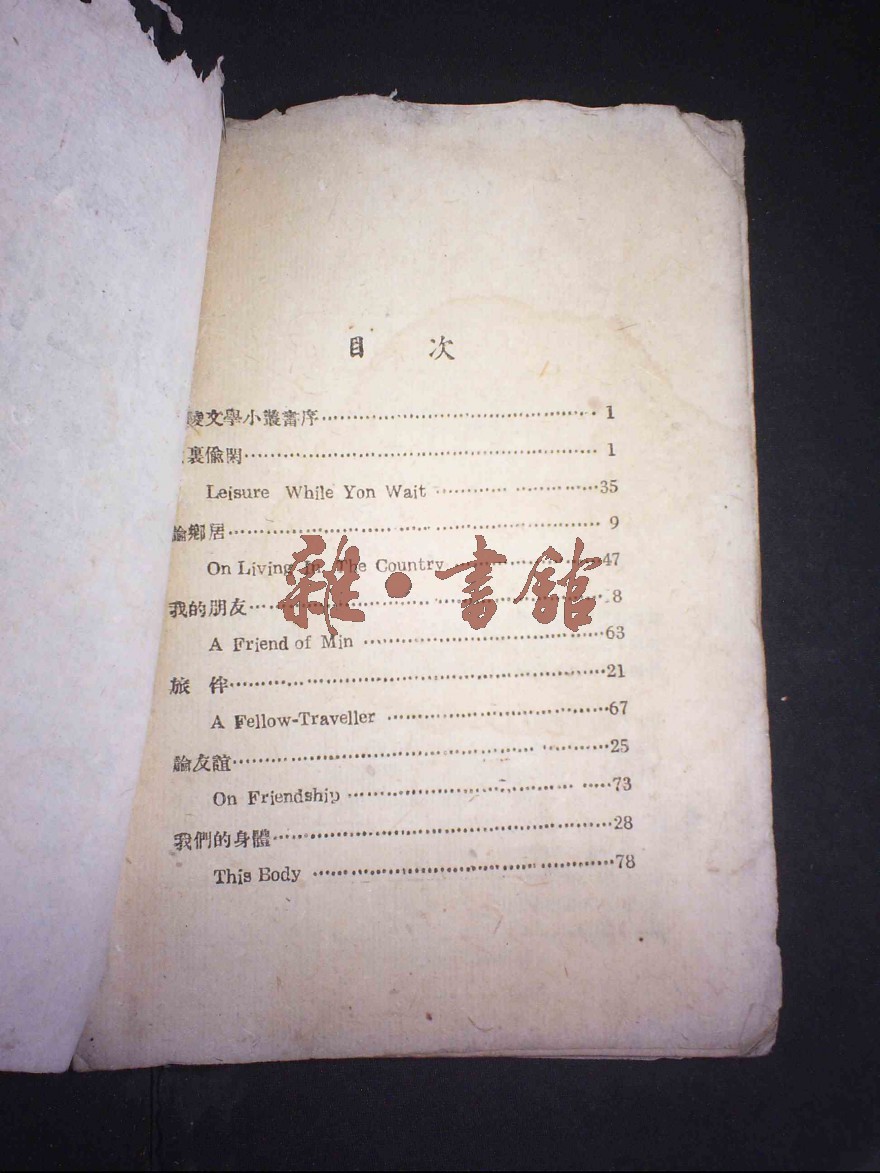 目 次
陵文學小叢書序 1
裏偸閑 1
Leisure While Yon Wait 35
論鄉居 9
On Living In The Country 47
我的朋友 8
A Friend of Min 63
旅 伴 21
A Fellow-Traveller 67
論友誼 25
On Friendship 73
我們的身體 28
This Body 78
雜·書館